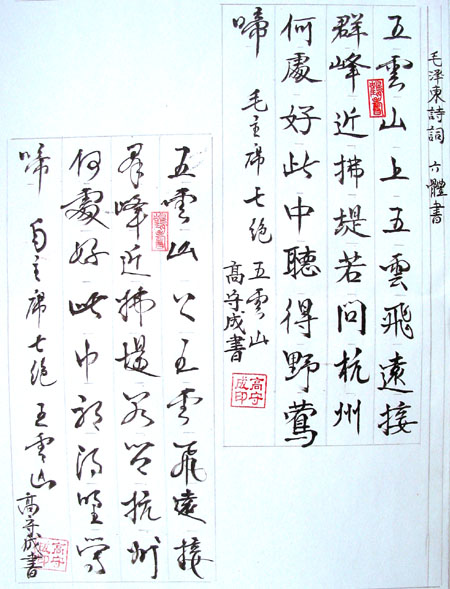 毛泽東詩詞 六體書
五雲山上五雲飛遠接
群峰近拂堤若问杭州
何處好此中聽得野鶯
啼 毛主席七绝 五雲山
高守成書
高守成印
五雲山上五雲飛遠接
群峰近拂堤若问杭州
何處好此中听得野莺
啼 毛主席七绝 五雲山
高守成書
高守成印